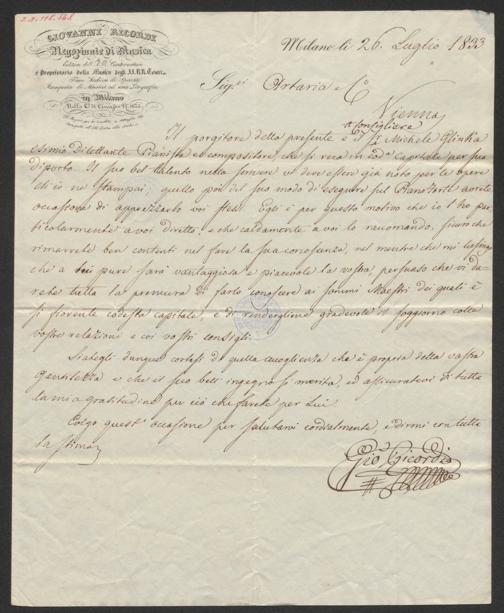 GIOVANNI RICORDI
Negoziante di Musica
e Proprietario della Musica degli II.RR. Teatri
in Milano
Milano li 26 Luglio 1833
Sig.ri Artaria e C.o
Vienna
Consigliere
Il porgitore della presente è il Sr. Michele Glinka
esimio Dilettante Pianista e compositore, che si reca in cod.a Capitale per suo
diporto. Il suo bel talento nello scrivere vi deve essere già noto per le opere
ch'io ne stampai; quello poi del suo modo di eseguire sul Piano Forte avrete
occasione di apprezzarlo voi stessi. Egli è per questo motivo che io l'ho par
ticolarmente a voi diretto, e che caldamente a voi lo raccomando, sicuro che
rimarrete ben contenti nel fare la sua conoscenza, nel mentre che mi lusingo
che a lui pure sarà vantaggiosa e piacevole la vostra, persuaso che vi da
rete tutta la premura di farlo conoscere ai sommi Maestri dei quali è
sì fiorente codesta capitale, e di rendergliene gradevole il soggiorno colle
vostre relazioni e coi vostri consigli.
Siategli dunque cortesi di quella accoglienza che è propria della vostra
gentilezza e che il suo bell'ingegno si merita, ed assicuratevi di tutta
la mia gratitudine per ciò che farete per Lui.
Colgo quest'occasione per salutarvi cordialmente, e dirmi con tutta
la stima
Gio. Ricordi